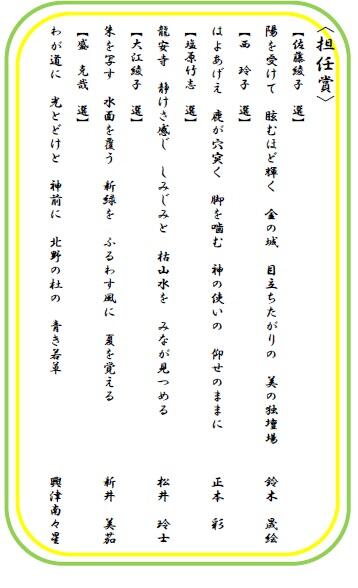 〈担任賞〉
【佐藤綾子　選】
陽を受けて　眩むほど輝く　金の城　目立ちたがりの　美の独壇場　鈴木　晟絵
【西　玲子　選】
はよあげえ　鹿が穴突く　脚を噛む　神の使いの　仰せのままに　正木　彩
【塩原竹志　選】
龍安寺　静けさ感じ　しみじみと　枯山水を　みなが見つめる　松井　玲士
【大江綾子　選】
朱を写す　水面を覆う　新緑を　ふるわす風に　夏を覚える　新井　美茄
【盛　克哉　選】
わが道に　光とどけと　神前に　北野の杜の　青き若草　興津南々星